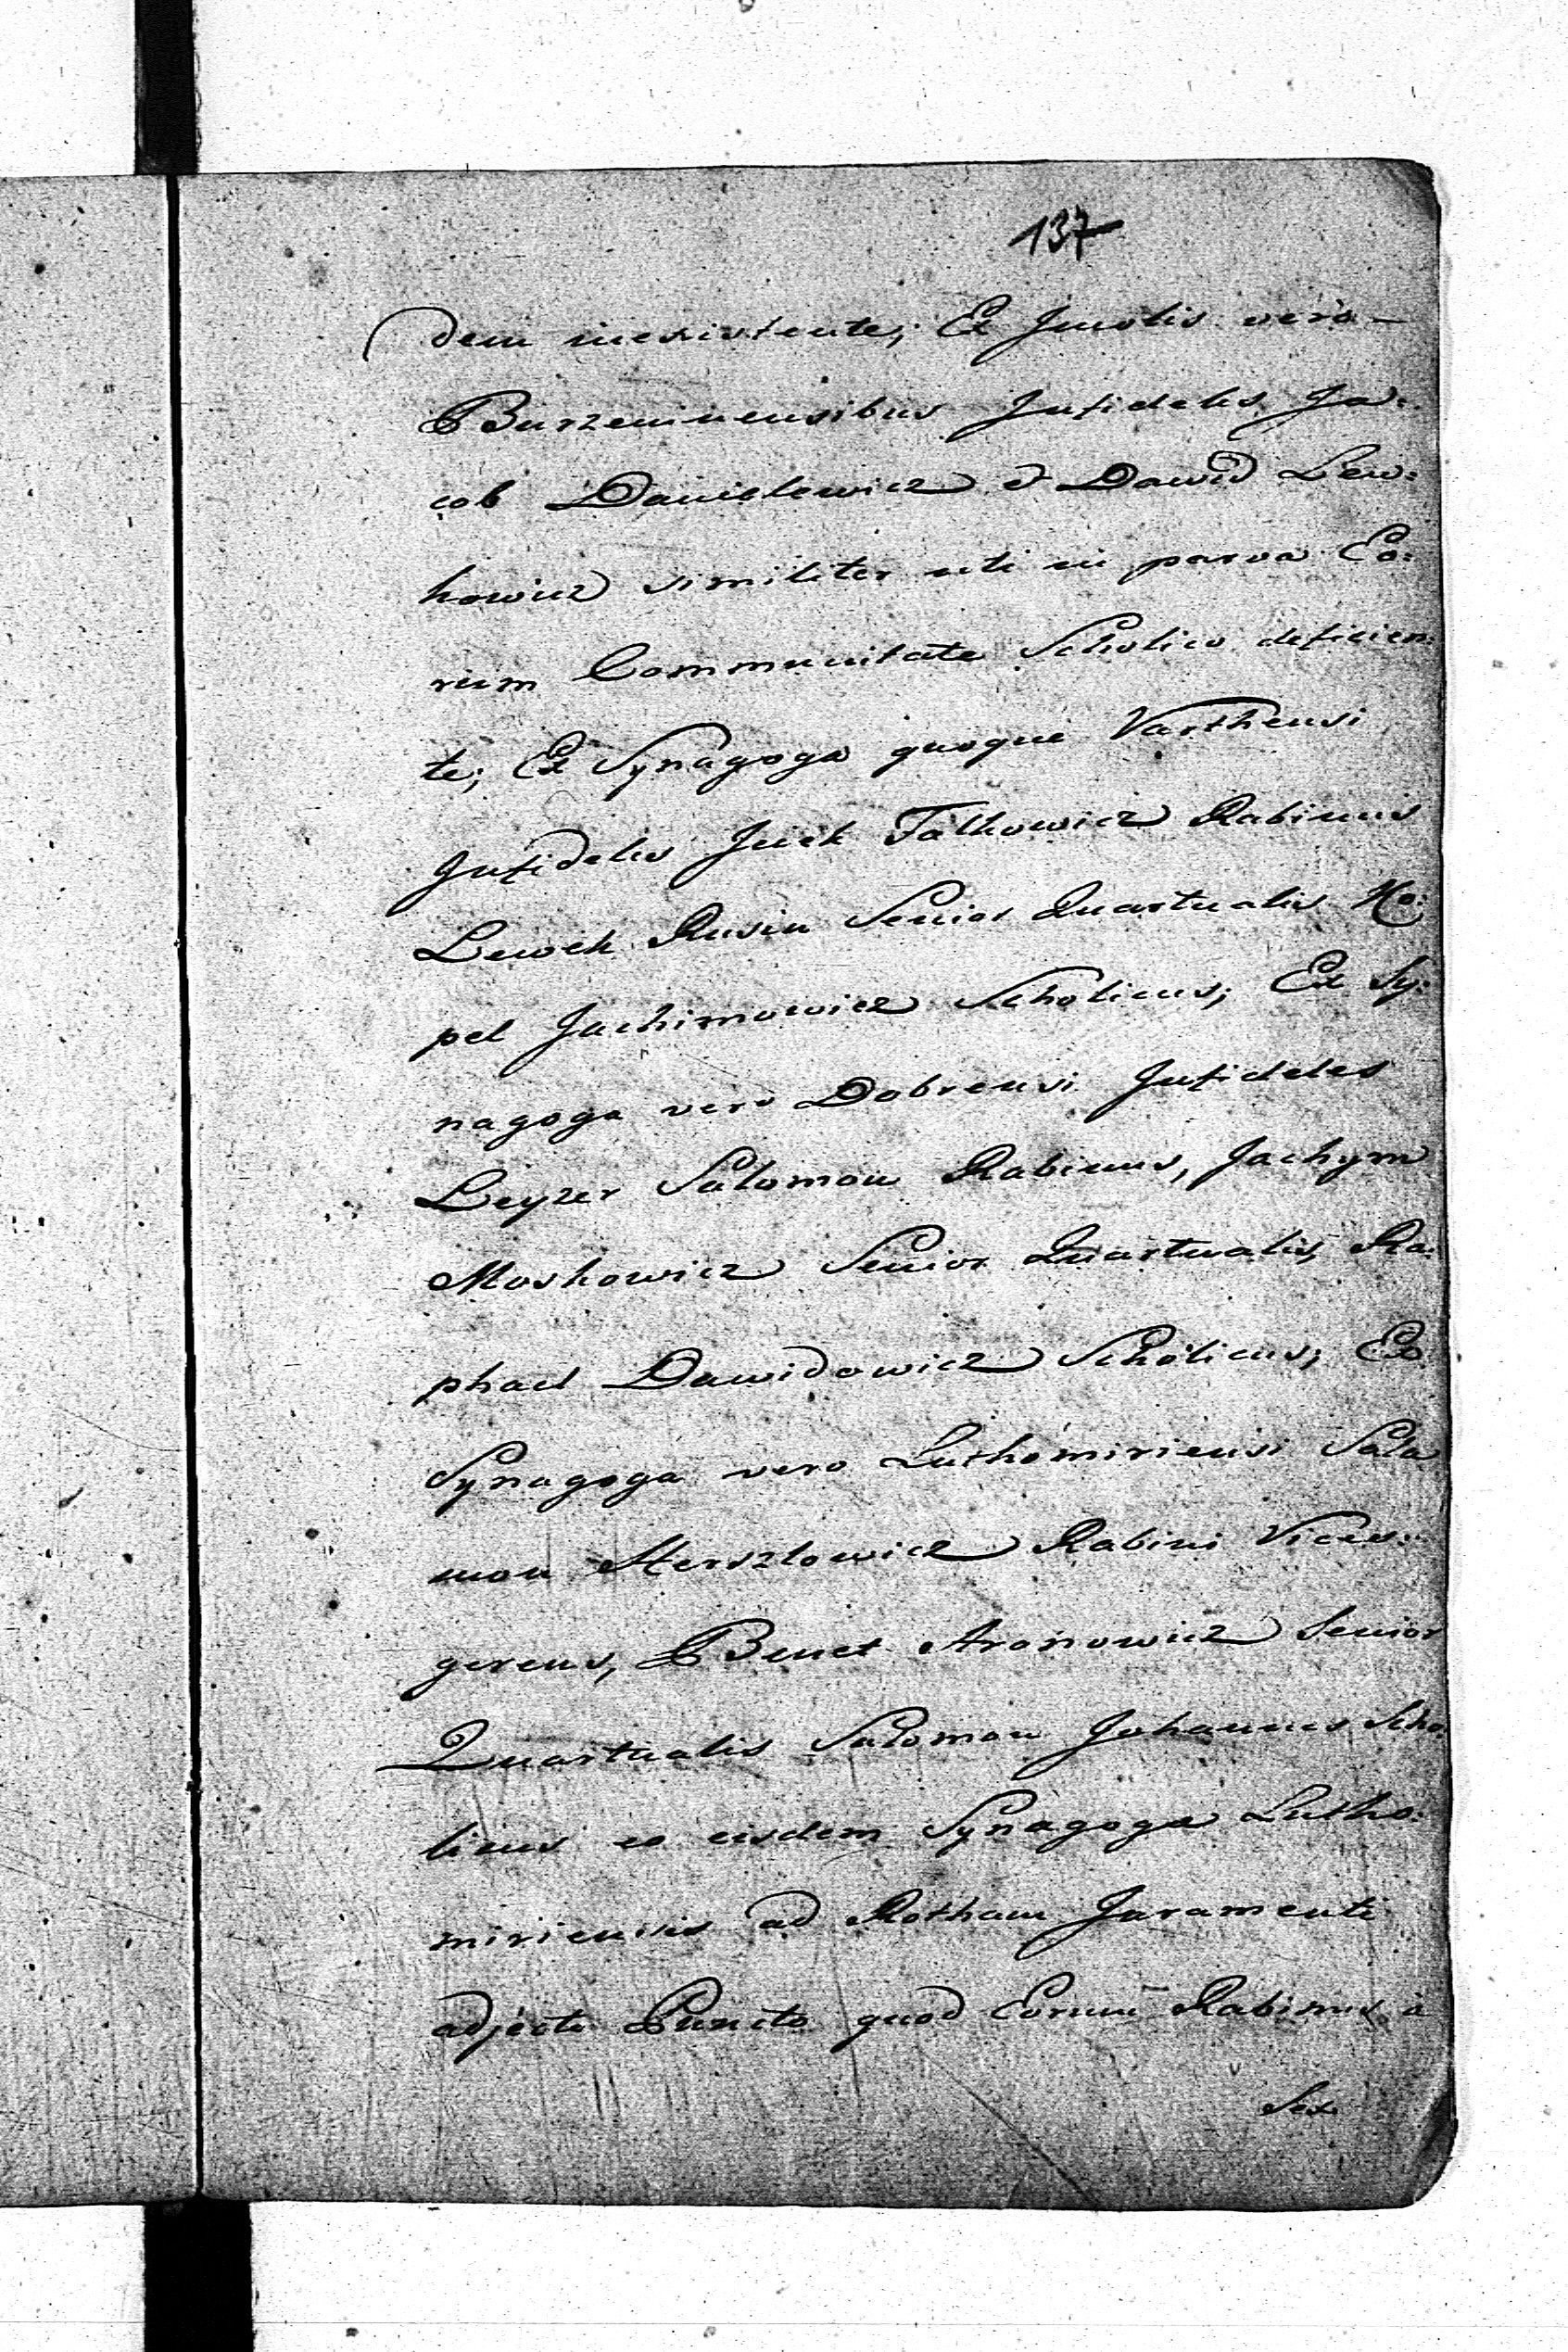 137
dem inexistente; Ex Incolis vero
Burzeninensibus Infideles Ja:
cob Danielewicz et Dawid Lew:
kowicz similiter uti in parva Eo:
rum Communitate Scholico deficien:
te; Ex Synagoga quoque Varthensi
Infideles Jcek Falkowicz Rabinus
Lewek Rusin Senior Quartualis Ko:
pel Jachimowicz Scholicus; Ex Sy:
nagoga vero Dobrensi Infideles
Leyzer Salomon Rabinus, Jachym
Moskowicz Senior Quartualis, Ra:
phael Dawidowicz Scholicus; Ex
Synagoga vero Luthomiriensi Salo
mon Herszlowicz Rabini Vices:
gerens, Benet Aronowicz Senior
Quartualis Salomon Johannes Scho:
licus ex eisdem Synagoga Lutho:
miriensis ad Rotham Juramenti
adjecto Puncto quod Eorum Rabinus à
Sex